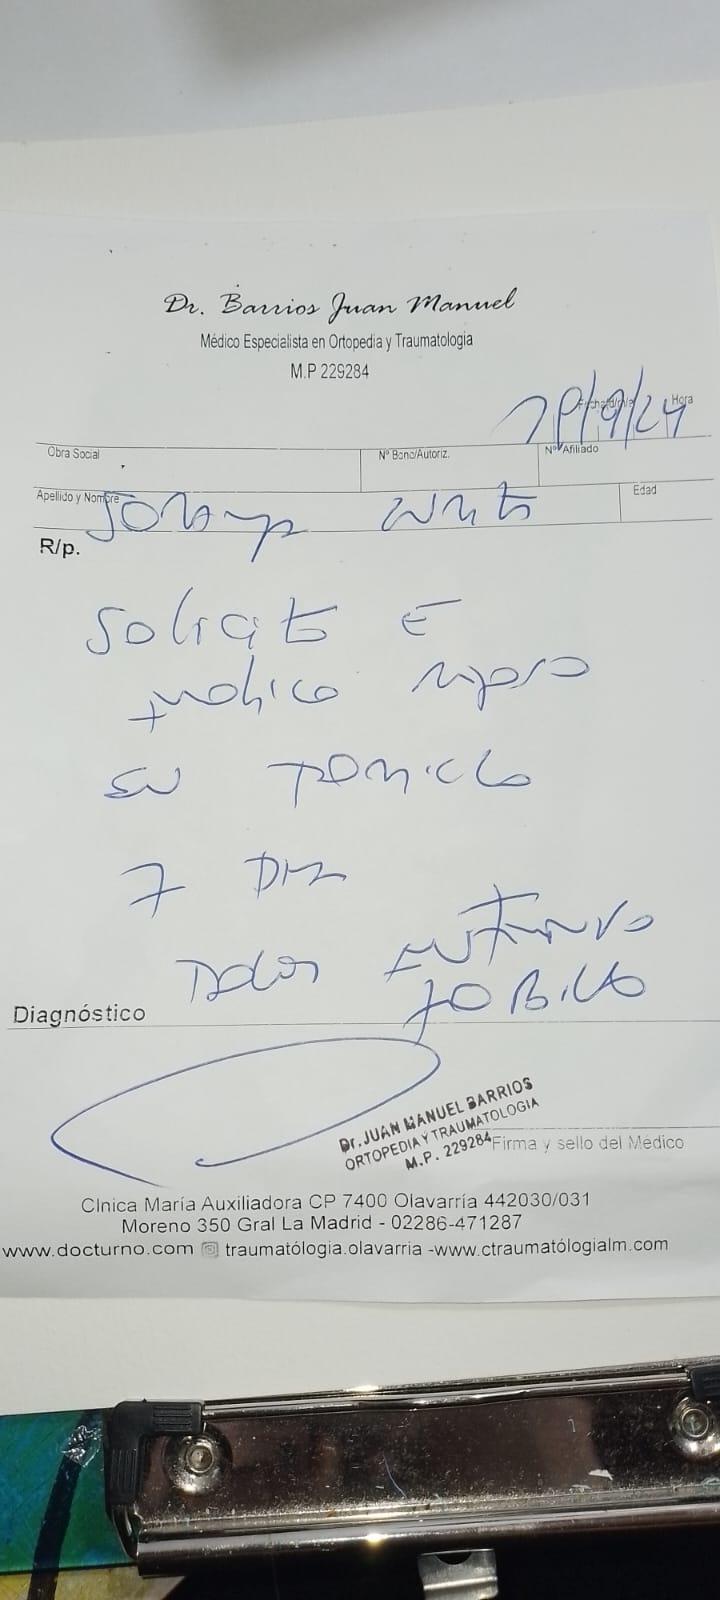 Dr. Barrios Juan Manuel
Médico Especialista en Ortopedia y Traumatologia
M.P 229284
Hora
Obra Social
Nº Bono/Autoriz.
Nº Afiliado
Apellido y Nombre
Edad
R/p.
Solicito E
Indico reposo
en Domicilo
7 Dias
Dolor
Diagnóstico
Dr. JUAN MANUEL BARRIOS
ORTOPEDIA Y TRAUMATOLOGIA
M.P. 229284
Firma y sello del Médico
Clnica María Auxiliadora CP 7400 Olavarría 442030/031
Moreno 350 Gral La Madrid - 02286-471287
www.docturno.com traumatólogia.olavarria -www.ctraumatólogialm.com